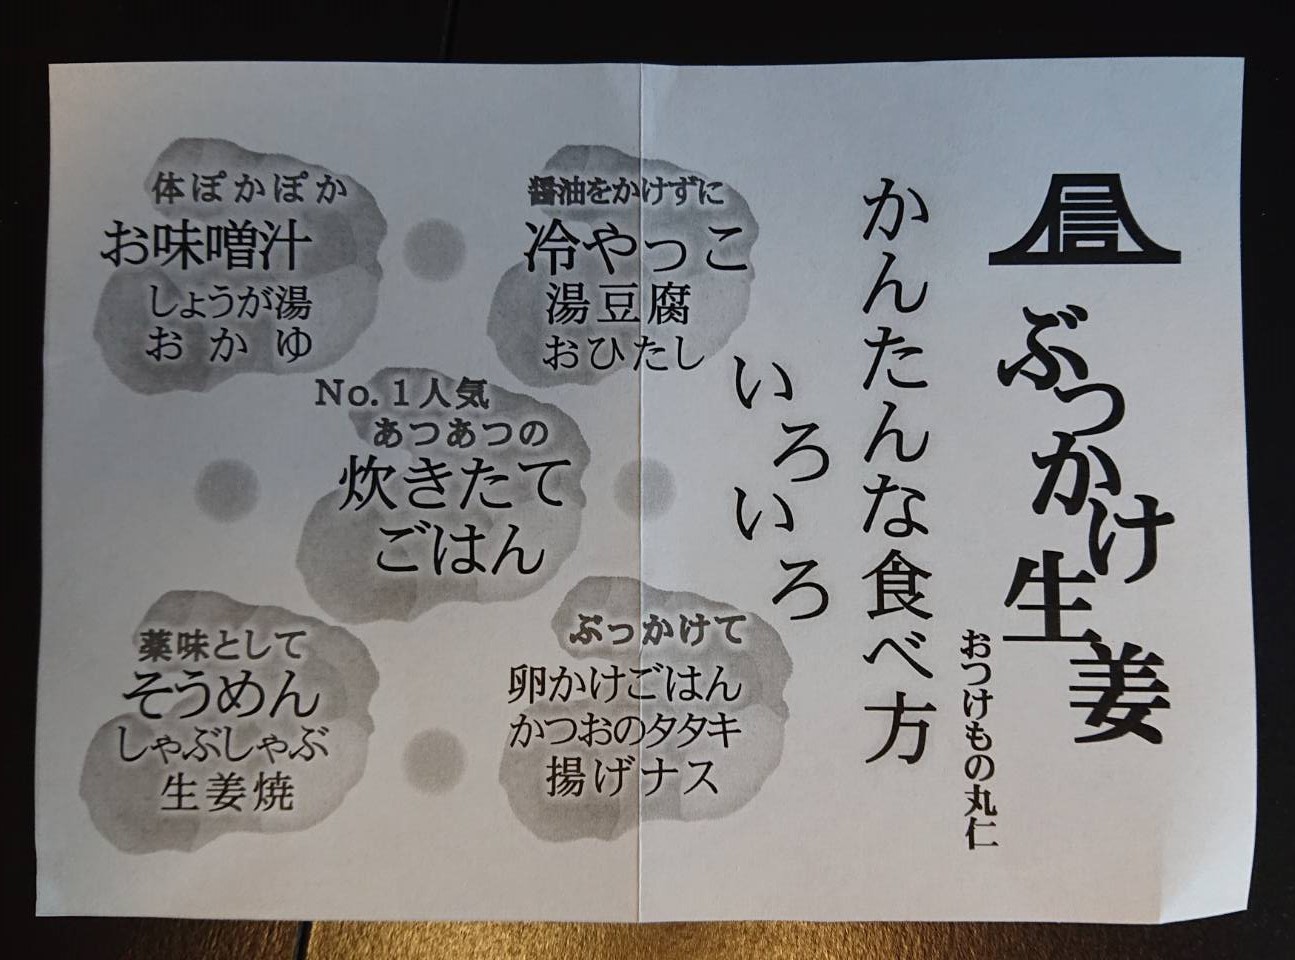 信
ぶっかけ生姜
おつけもの丸仁
かんたんな食べ方
いろいろ
醤油をかけずに
冷やっこ
湯豆腐
おひたし
体ぽかぽか
お味噌汁
しょうが湯
おかゆ
No.1人気
あつあつの
炊きたて
ごはん
ぶっかけて
卵かけごはん
かつおのタタキ
揚げナス
薬味として
そうめん
しゃぶしゃぶ
生姜焼